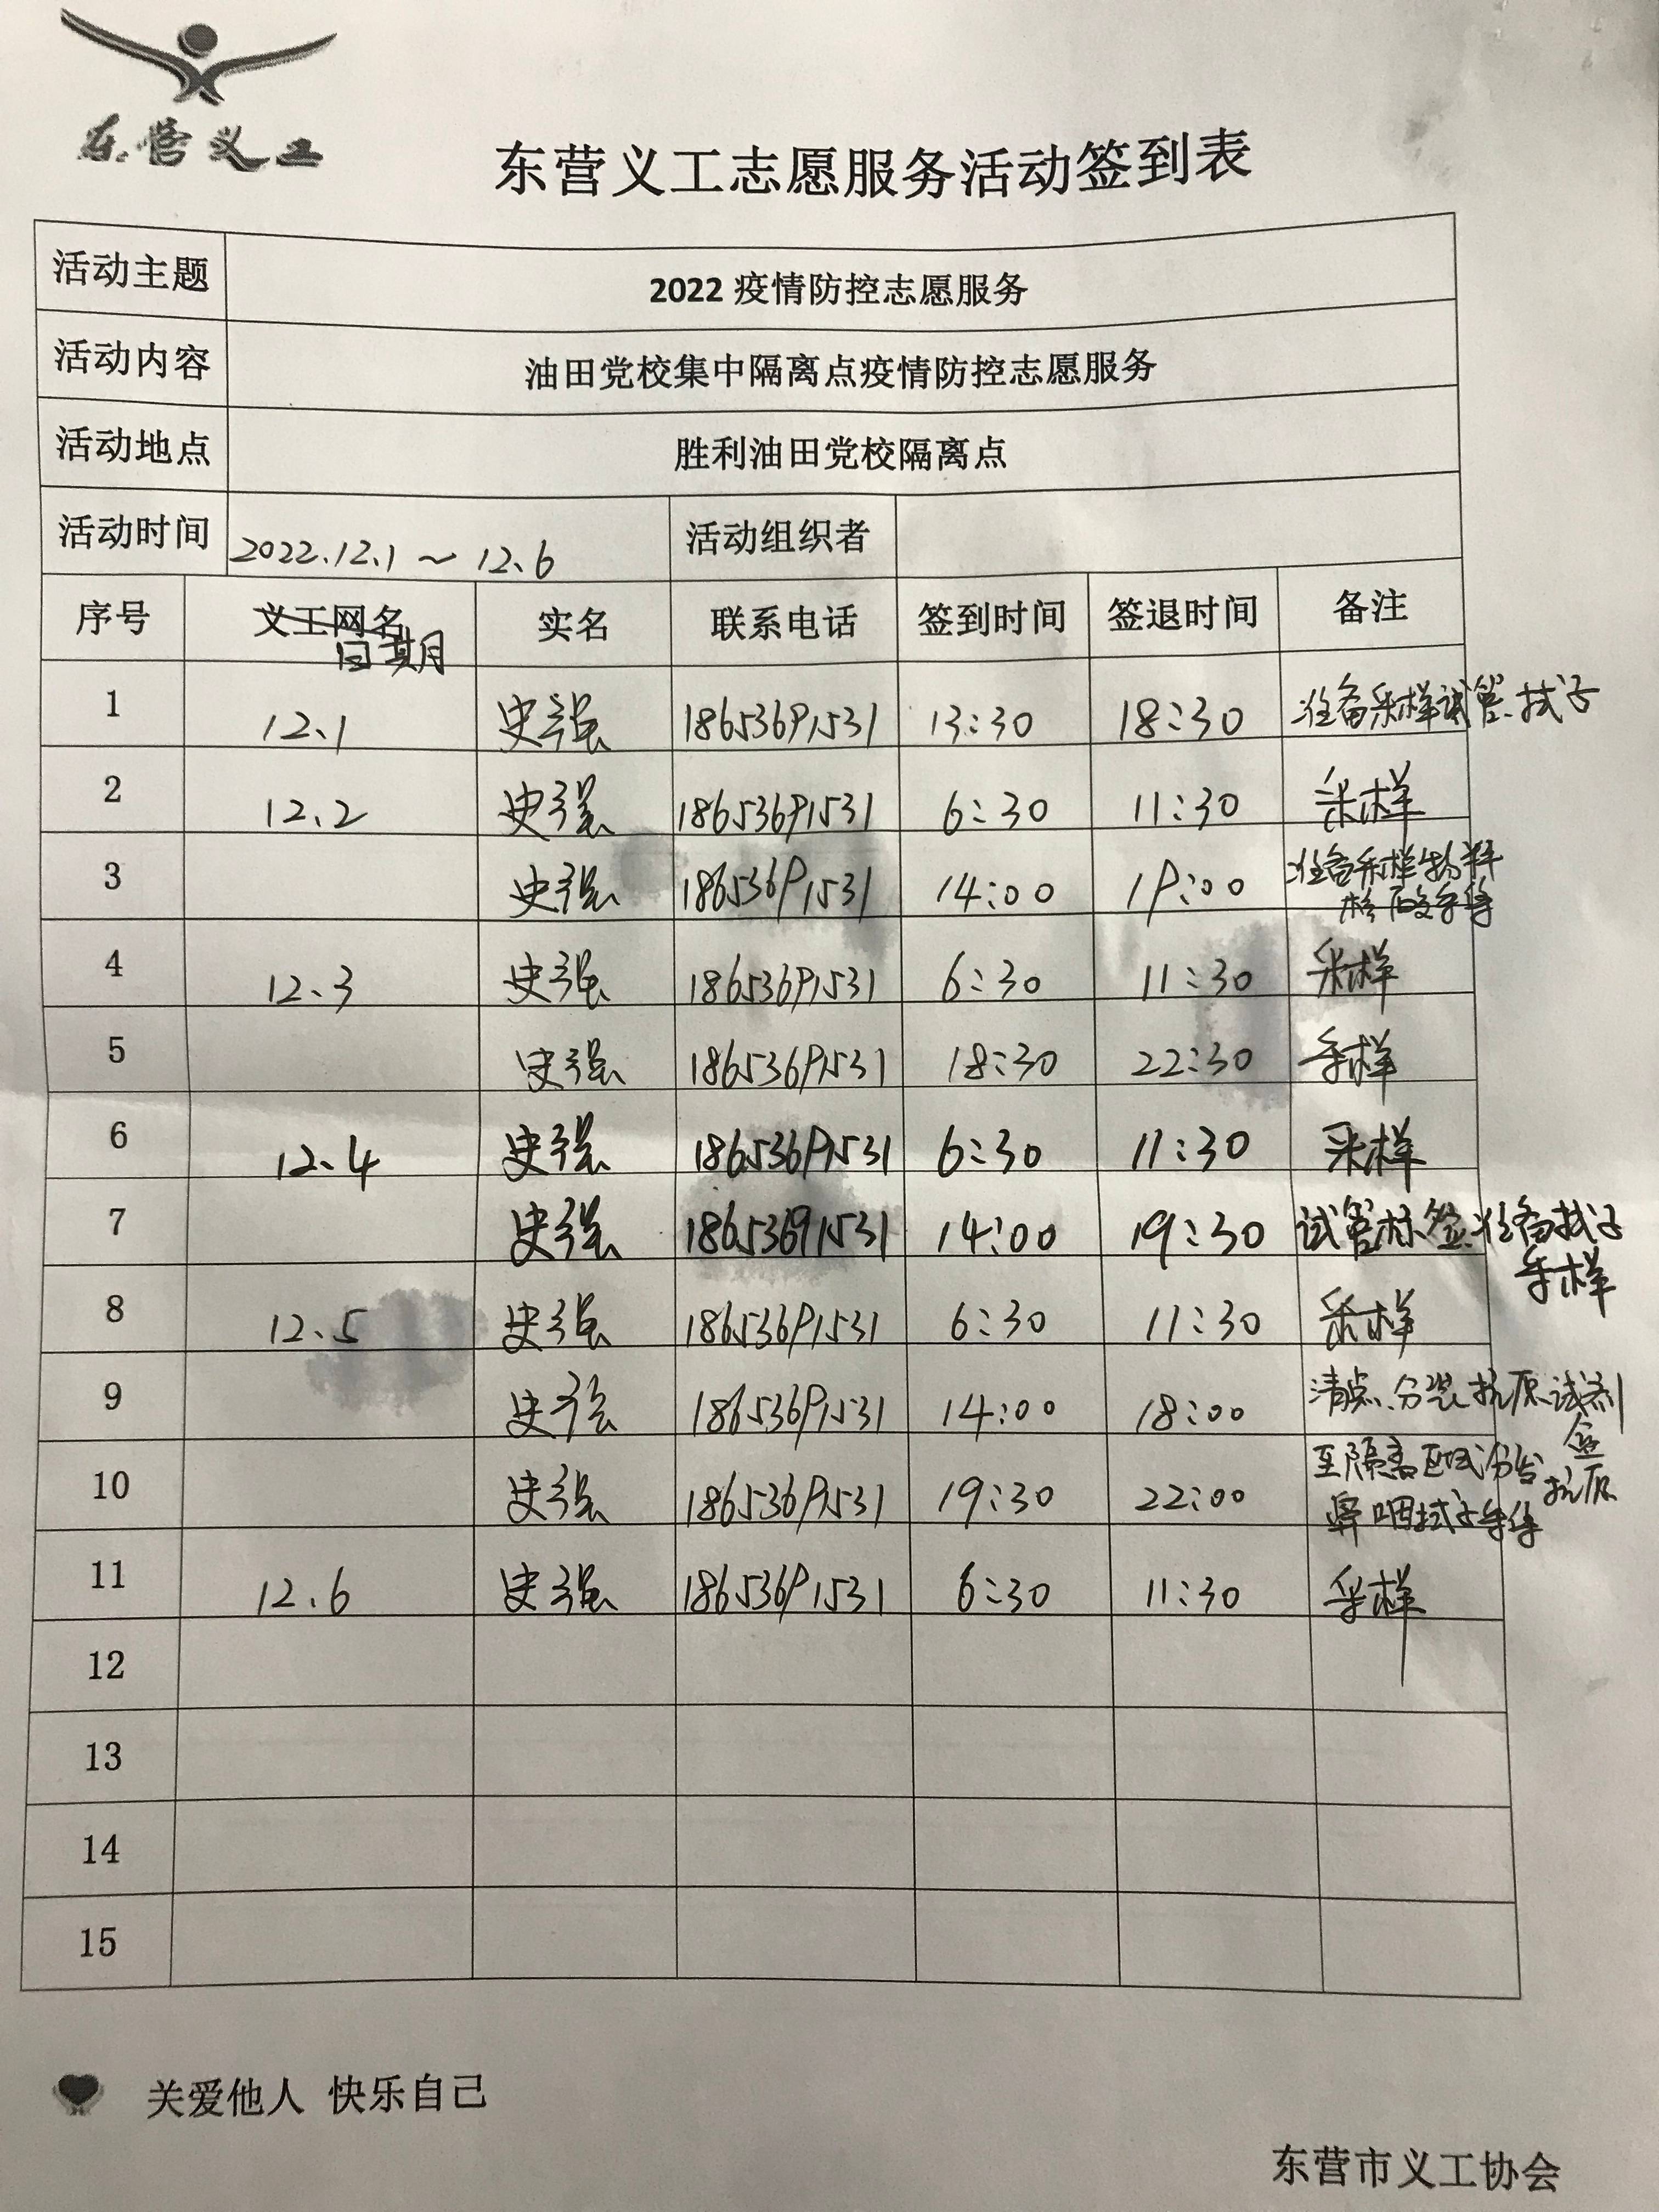 东营义工
东营义工志愿服务活动签到表
活动主题 2022疫情防控志愿服务
活动内容 油田党校集中隔离点疫情防控志愿服务
活动地点 胜利油田党校隔离点
活动时间 2022.12.1～12.6 活动组织者
序号 义工网名 日期 实名 联系电话 签到时间 签退时间 备注
1 12.1 史强 18653691531 13:30 18:30 准备采样试管、拭子
2 12.2 史强 18653691531 6:30 11:30 采样
3 史强 18653691531 14:00 19:00 准备采样物料
核酸采样
4 12.3 史强 18653691531 6:30 11:30 采样
5 史强 18653691531 18:30 22:30 采样
6 12.4 史强 18653691531 6:30 11:30 采样
7 史强 18653691531 14:00 19:30 试管标签、准备拭子
采样
8 12.5 史强 18653691531 6:30 11:30 采样
9 史强 18653691531 14:00 18:00 清点、分装抗原试剂
盒
10 史强 18653691531 19:30 22:00 至隔离区域分发抗原
鼻咽拭子采样
11 12.6 史强 18653691531 6:30 11:30 采样
12
13
14
15
关爱他人 快乐自己
东营市义工协会